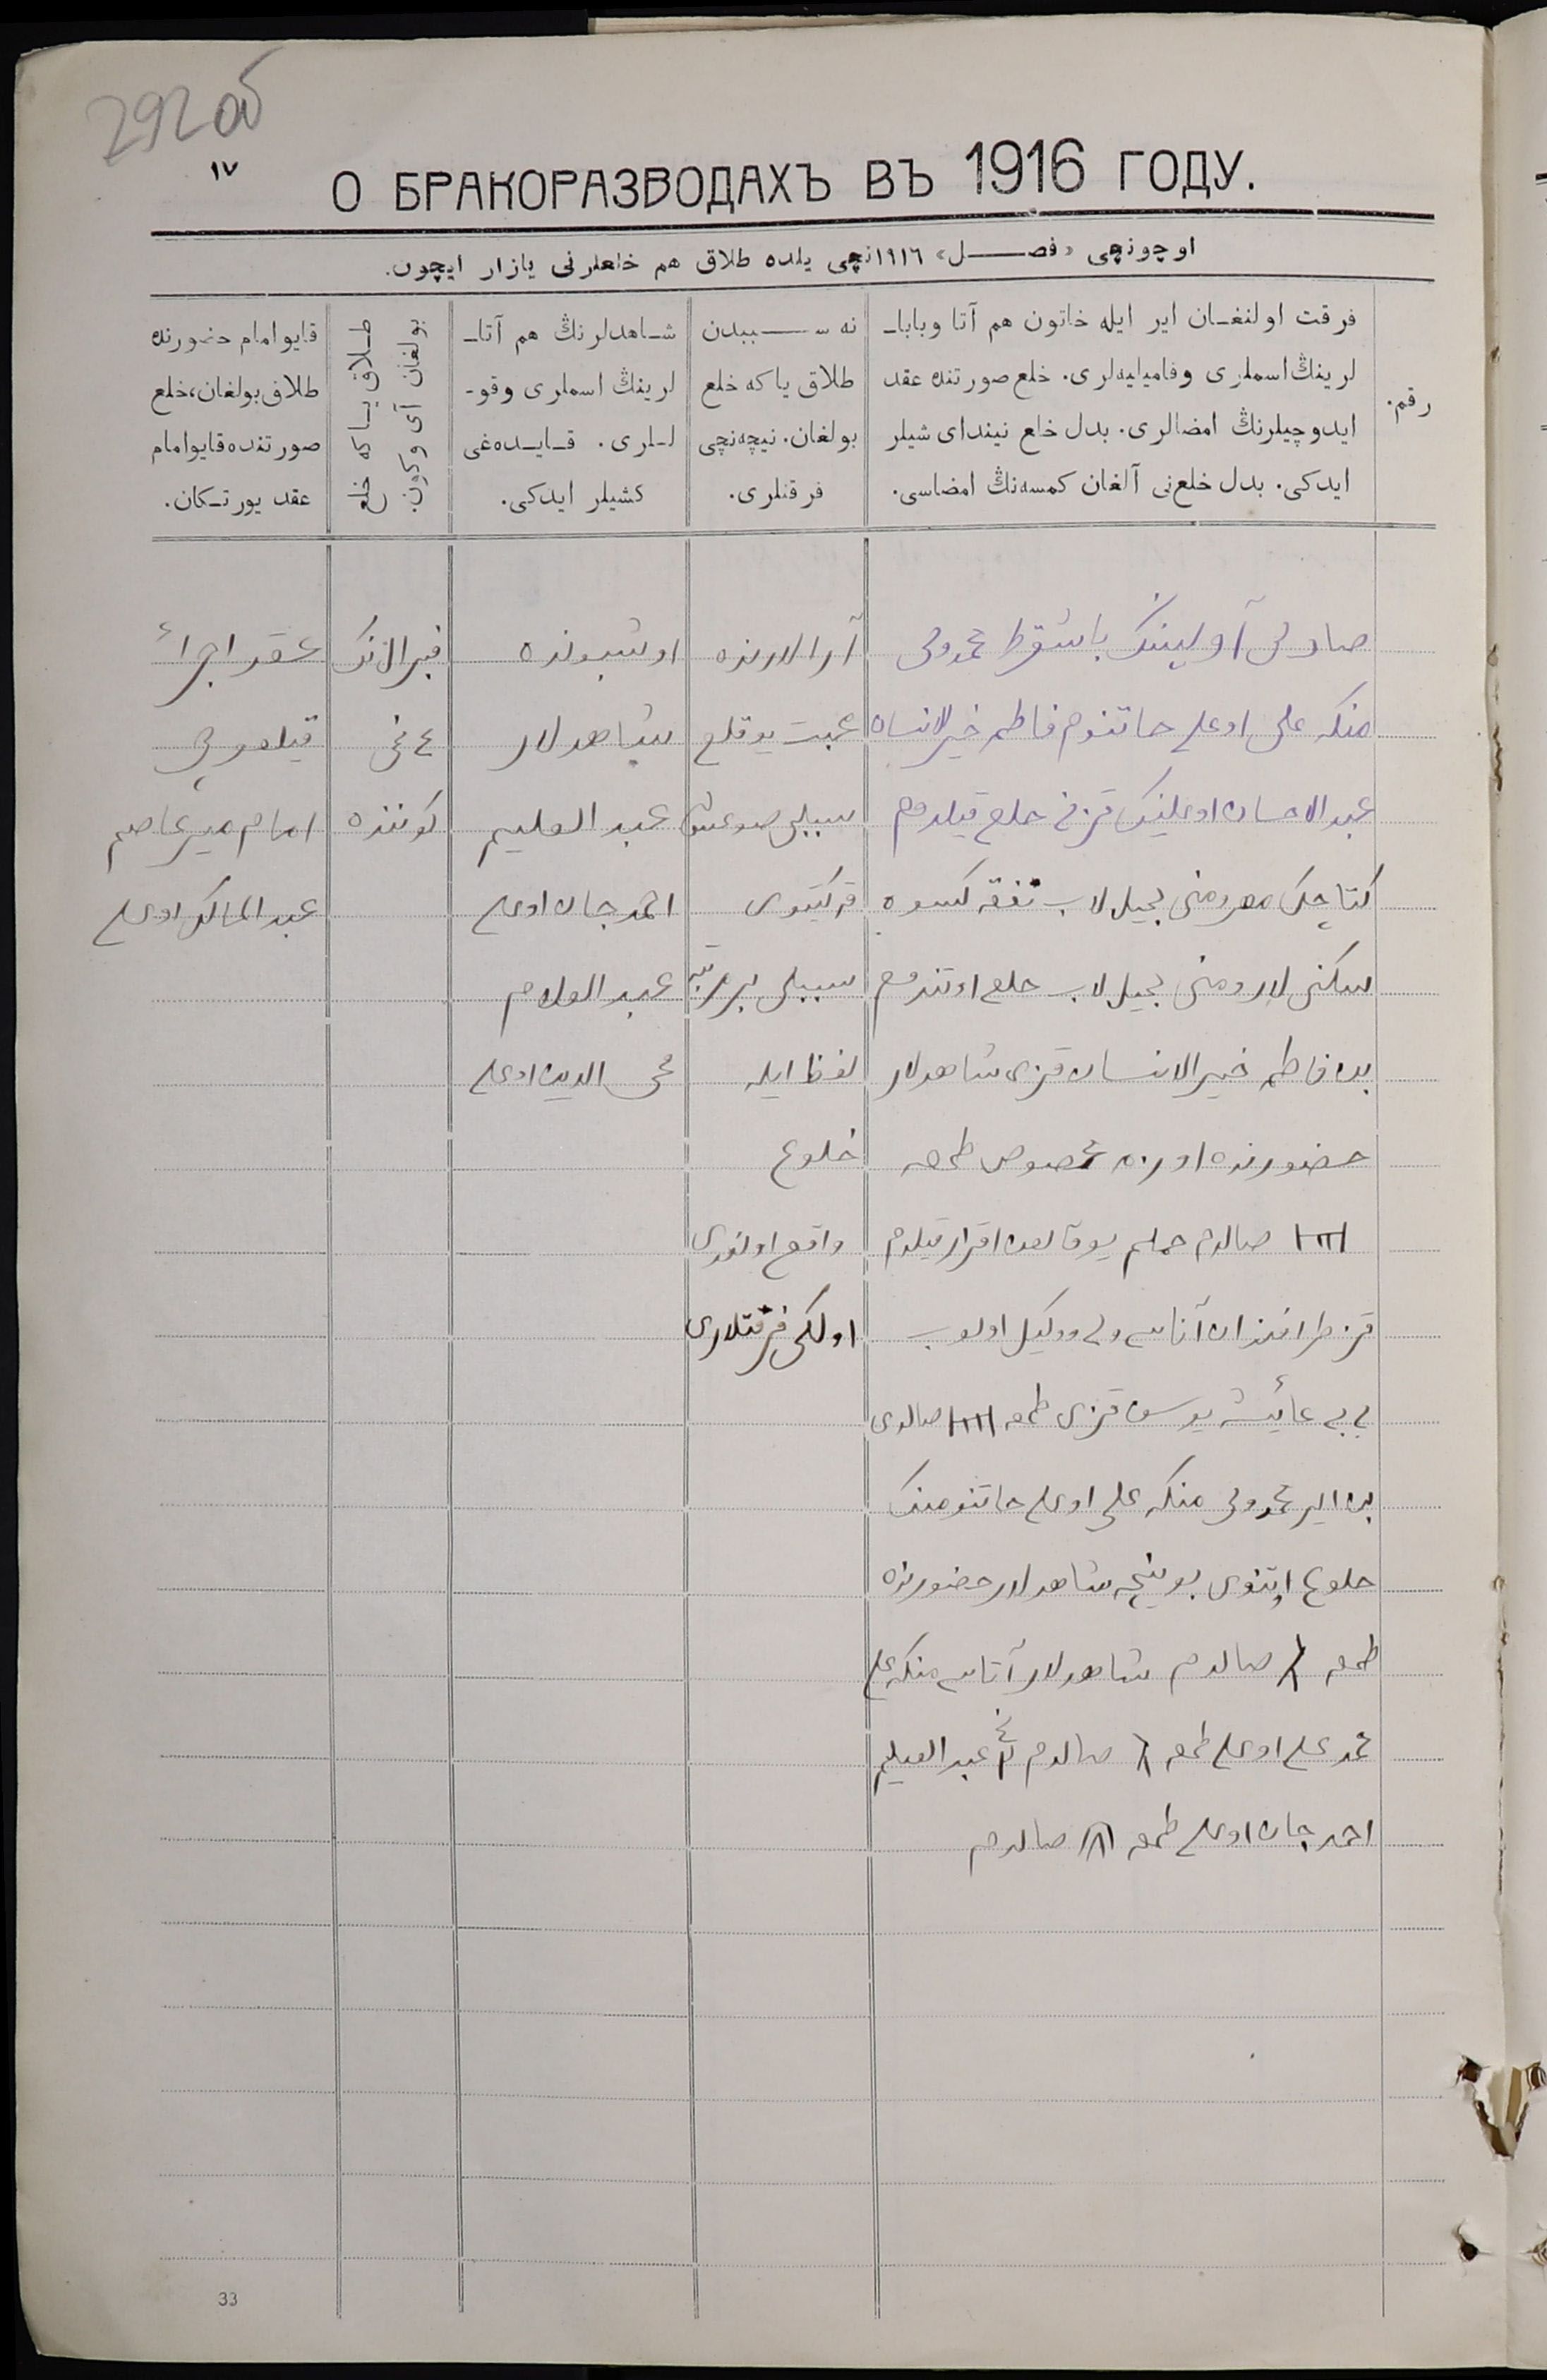 292 об
١٧
О БРАКОРАЗВОДАХЪ ВЪ 1916 ГОДУ.
اوچونچی «فصل» ١٩١٦نچی یلده طلاق هم خلعلرنی یازار ایچون.
رقم.
فرقت اولنغان ایر ایله خاتون هم آتا وبابا-
لرینڭ اسملری وفامیلیه‌لری. خلع صورتنده عقد
ایدوچیلرنڭ امضالری. بدل خلع نیندای شیلر
ایدکی. بدل خلع‌نی آلغان کمسه‌نڭ امضاسی.
نه سببدن
طلاق یا که خلع
بولغان. نیچه‌نچی
فرقتلری.
شاهدلرنڭ هم آتا-
لرینڭ اسملری وقو-
للری. قایده‌غی
کشیلر ایدکی.
طلاق یا که خلع
بولغان آی وکون.
قایو امام حضورنده
طلاق بولغان، خلع
صورتنده قایو امام
عقد یورتکان.
صادق آولیننک باشقرط محمدولی
منکه علی اوغلی خاتنوم فاطمه خیرالانسان
عبدالاحسان اوغلینک قزنی خلع قیلدوم
نفقه کسوه
سکنی لاردمنی کیچیل لاب خلع اوتندوم
بن فاطمه خیرالانسان قزی شاهدلار
حضورنده اوزم مخصوص طمغه
صالدم حملم یوقالغن اقرار قیلدم
آناسی ولی ووکیل اولوب
بی بی عائیشه یوسف قزی طمغه صالدی
بن ایر محمدولی منکه علی اوغلی خاتنومنک
خلوع اوتنوی بوینچه شاهدلار حضورنده
طمغه صالدم شاهدلار آتاسی منکه علی
محمد علی اوغلی طمغه صالدم عبدالعلیم
احمدجان اوغلی طمغه صالدم
آرالارنده
محبت یوقلغ
سببلی
سببلی بر مرتبه
لفظ ایله
خلوع
واقع اولندی
اولکی فرقتلاری
اوشبونده
شاهدلار
عبدالعلیم
احمدجان اوغلی
عبدالعلام
محی الدین اوغلی
فبرالنک
٤ نچی
کوننده
عقد اجراء
قیلدوچی
امام میرعاصم
عبدالمالک اوغلی
33